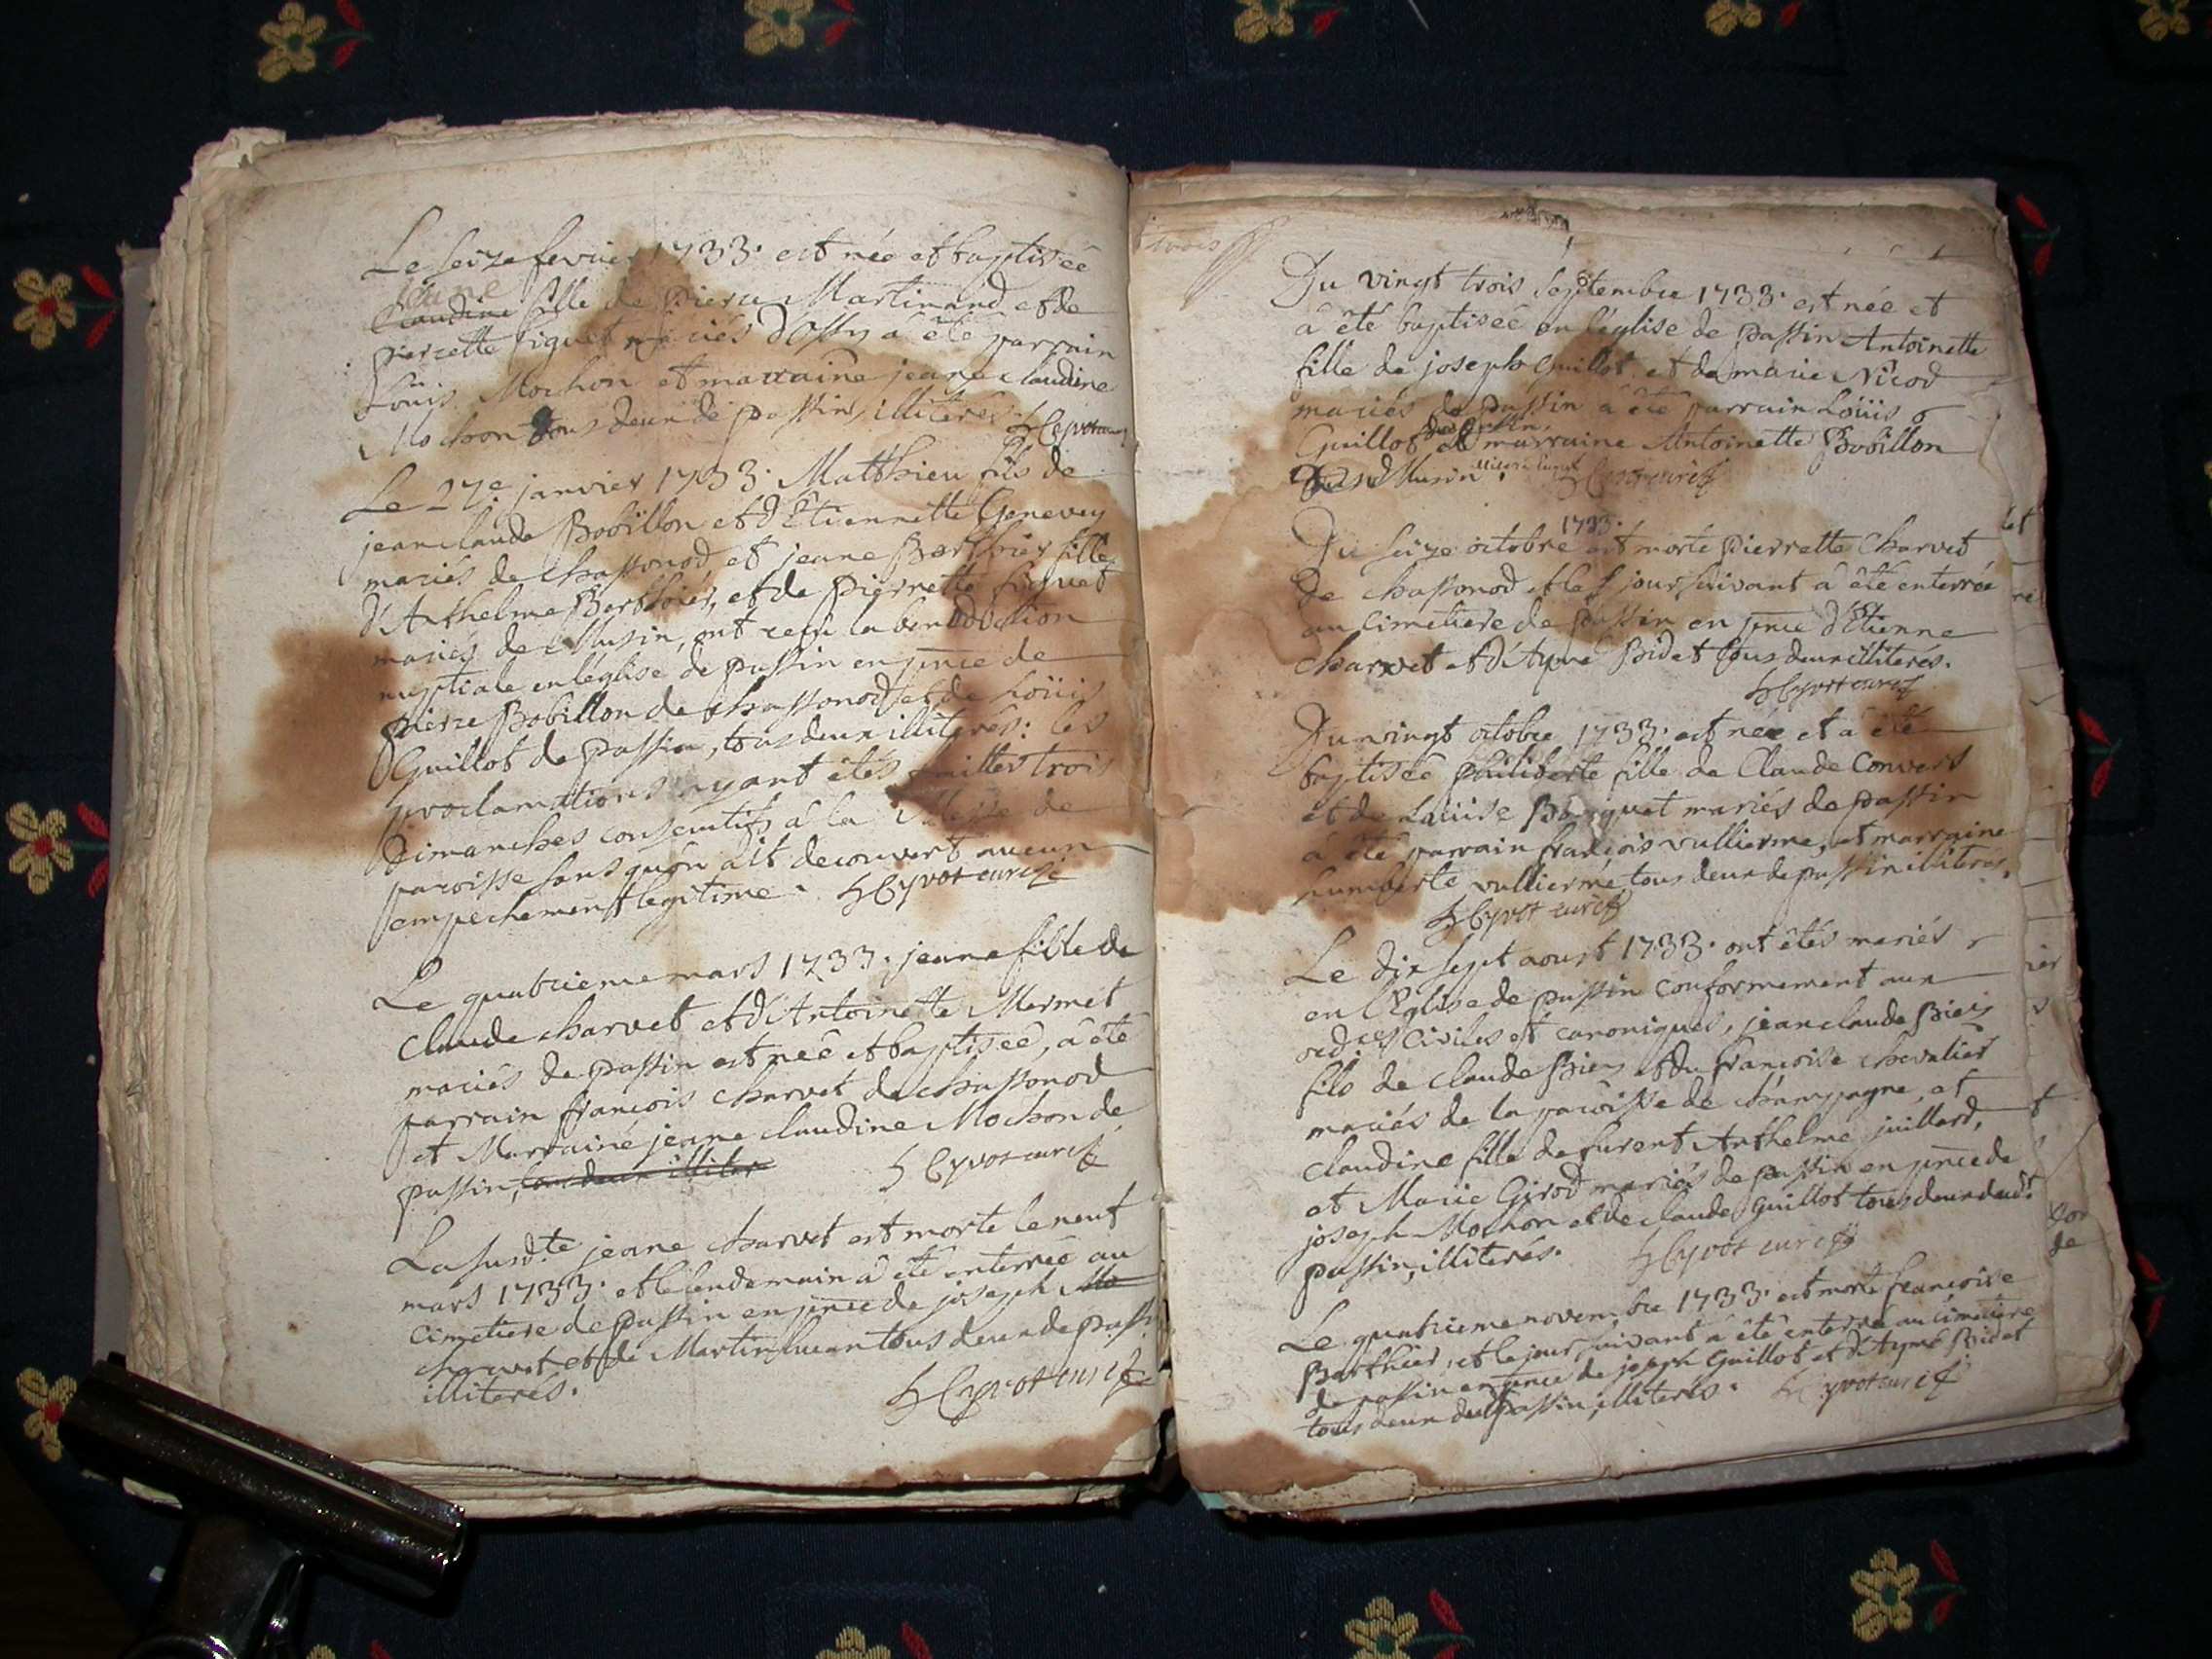 Le seize fevrier 1733. est née et baptiséé
jeane
Claudine fille de pierre Martinand et de
pierrette figuet mariés d'Ossy a êté parrain
Loüis Mochon et marraine jeane claudine
Mochon tous deux de passin illiterés. Cyvot curé
Le 27e janvier 1733. Matthieu fils de
jean claude Bobillon et d'Etiennette Genevey
mariés de chassonod, et jeane Berthier fille
d'Anthelme Berthier, et de pierrette figuet
mariés de Musin, ont reçu la benediction
nuptiale en l'église de passin en pnce de
pierre Bobillon de chassonod et de Loüis
Guillot de passin, tous deux illiterés: les
proclamations ayant êtés faittes trois
dimanches consecutifs â la Messe de
paroisse sans qu'on ait decouvert aucun
empechement legitime. Cyvot curé
Le quatrieme mars 1733. jeane fille de
Claude charvet et d'Antoinette Mermet
mariés de passin est néé et baptiséé, â êté
parrain françois charvet de chassonod
et Marraine jeane claudine Mochon de
passin, tous deux illiter Cyvot curé
La susd.te jeane charvet est morte le neuf
mars 1733. et le lendemain â êté enterréé au
cimetiere de passin en pnce de joseph Mo
charvet et de Martin tous deux de passi
illiterés. Cyvot curé
trois
Du vingt trois septembre 1733. est née et
â êté baptiséé en l'église de passin Antoinette
fille de joseph Guillot et de marie Nicod
mariés de passin â êté parrain Loüis
Guillot et marraine Antoinette Bobillon
de Musin. Cyvot curé
1733.
Du seize octobre est morte pierrette charvet
de chassonod et le jour suivant â êté enterréé
au cimetiere de passin en pnce d'Etienne
charvet et d'Aymé Bidet tous deux illiterés.
Cyvot curé
Du vingt octobre 1733. est née et a êté
baptiséé philiberte fille de Claude Convers
et de Loüise mariés de passin
â êté parrain françois vullierme, et marraine
humberte vullierme, tous deux de passin illiterés.
Cyvot curé
Le dix sept aoust 1733. ont êtés mariés
en l'Eglise de passin conformement aux
ord.ces civiles et canoniques, jean claude Biez
fils de claude Biez et du françoise chevalier
mariés de la paroisse de champagne, et
claudine fille de furent Anthelme juillard,
et Marie Girod mariés de passin en pnce de
joseph Mochon et de claude Guillot tous deux dud.t
passin, illiterés. Cyvot curé
Le quatrieme novembre 1733. est morte françoise
Berthier, et le jour suivant â êté enterré au cimetiere
de passin en pnce de joseph Guillot et d'Aymé Bidet
tous deux de passin, illiterés. Cyvot curé